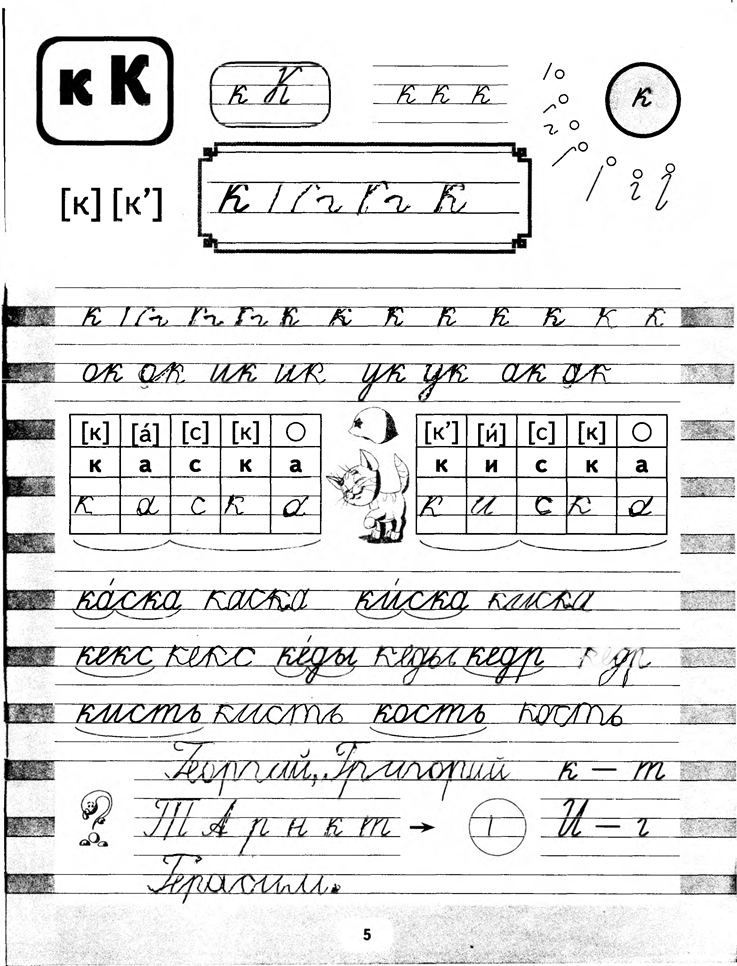 к К к К к к к к
[к] [к’] к г г к
к г г к к к к к к к к
ок ок ик ик ук ук ак ак
[к] [а́] [с] [к] [к’] [и́] [с] [к]
к а с к а к и с к а
к а с к а к и с к а
ка́ска каска ки́ска киска
кекс кекс ке́ды кеды кедр кедр
кисть кисть кость кость
Георгий, Григорий к – т
Т А р н к т → И – г
Герасим.
5